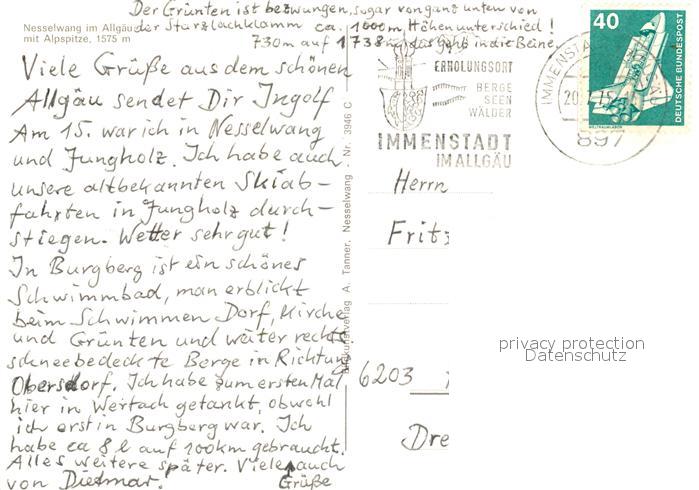 Der Grünten ist bezwungen, sogar von ganz unten von
der Starzlachklamm ca. 1000m Höhenunterschied!
730m auf 1738m, das geht in die Beine.
Nesselwang im Allgäu
mit Alpspitze, 1575 m
Viele Grüße aus dem schönen
Allgäu sendet Dir Ingolf
Am 15. war ich in Nesselwang
und Jungholz. Ich habe auch
unsere altbekannten Skiab-
fahrten in Jungholz durch-
stiegen. Wetter sehr gut!
In Burgberg ist ein schönes
Schwimmbad, man erblickt
beim Schwimmen Dorf, Kirche
und Grünten und weiter rechts
schneebedeckte Berge in Richtung
Obersdorf. Ich habe zum ersten Mal
hier in Wertach getankt, obwohl
ich erst in Burgberg war. Ich
habe ca 8 l auf 100km gebraucht.
Alles weitere später. Viele auch
von Dietmar. Grüße
verlag A. Tanner, Nesselwang · Nr. 3946 C
ERHOLUNGSORT
BERGE
SEEN
WÄLDER
IMMENSTADT
IM ALLGÄU
IMMENSTADT
20.
897
40
DEUTSCHE BUNDESPOST
WELTRAUMLABOR
Herrn
Fritz
6203
Dre
privacy protection
Datenschutz